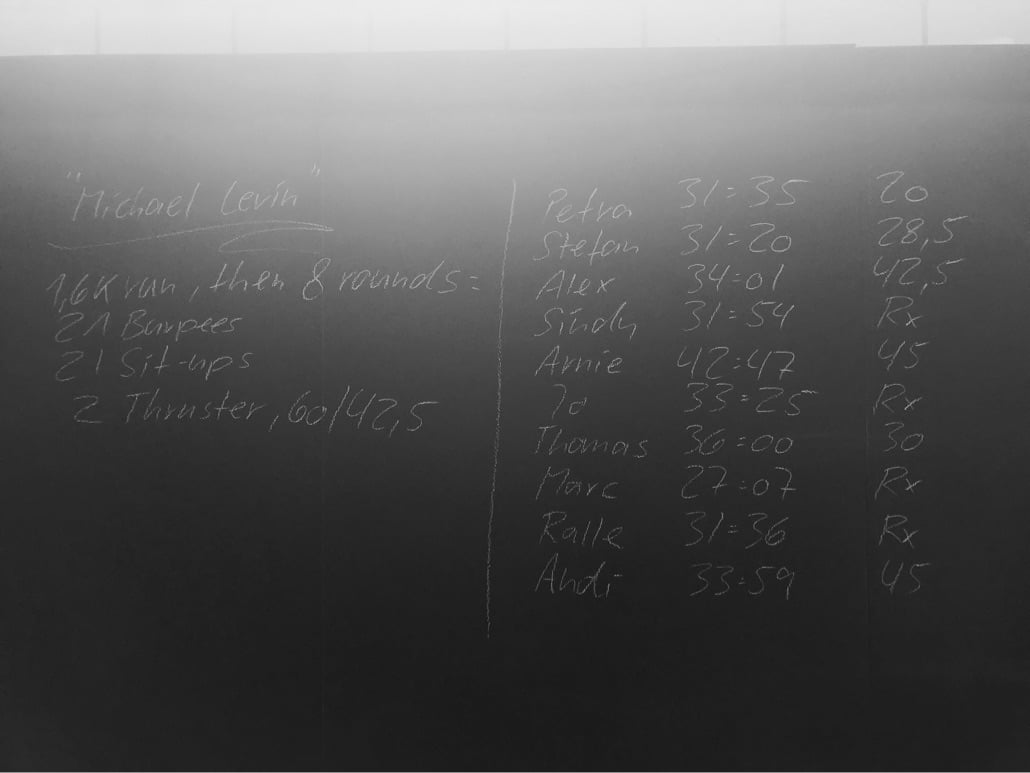 "Michael Levin"
1,6K run, then 8 rounds:
21 Burpees
21 Sit-ups
2 Thruster, 60/42,5
Petra 31:35 20
Stefan 31:20 28,5
Alex 34:01 42,5
Sindy 31:54 Rx
Arnie 42:47 45
Jo 33:25 Rx
Thomas 36:00 30
Marc 27:07 Rx
Ralle 31:36 Rx
Andi 33:59 45